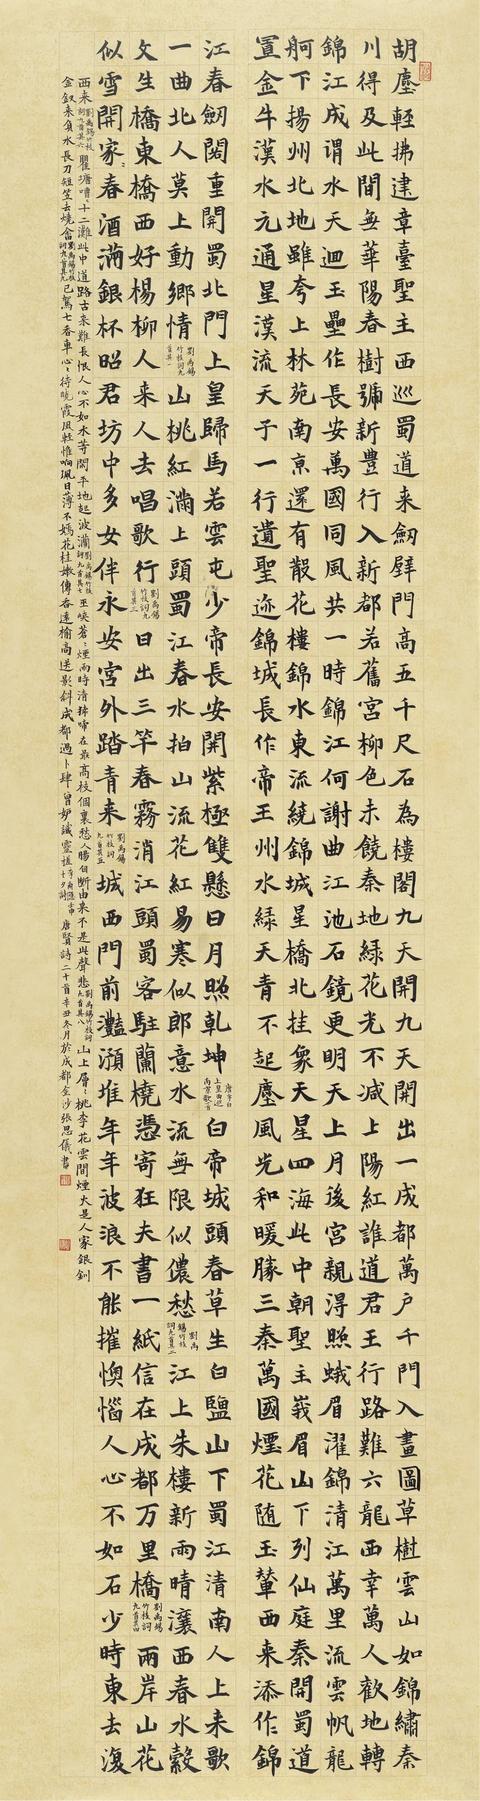 胡塵輕拂建章臺聖主西巡蜀道来劒壁門高五千尺石為樓閣九天開九天開出一成都萬户千門入畫圖草樹雲山如錦繡秦
川得及此間無華陽春樹號新豐行入新都若舊宮柳色未饒秦地綠花光不減上陽紅誰道君王行路難六龍西幸萬人歡地轉
錦江成渭水天迴玉壘作長安萬國同風共一時錦江何謝曲江池石鏡更明天上月後宮親得照蛾眉濯錦清江萬里流雲帆龍
舸下揚州北地雖夸上林苑南京還有散花樓錦水東流繞錦城星橋北挂象天星四海此中朝聖主峩眉山下列仙庭秦開蜀道
置金牛漢水元通星漢流天子一行遺聖迹錦城長作帝王州水緑天青不起塵風光和暖勝三秦萬國煙花随玉輦西来添作錦
江春劒閣重開蜀北門上皇歸馬若雲屯少帝長安開紫極雙懸日月照乾坤唐李白上皇西巡南京歌十首白帝城頭春草生白鹽山下蜀江清南人上来歌
一曲北人莫上動鄉情劉禹錫竹枝詞九首其一山桃紅滿上頭蜀江春水拍山流花紅易寒似郎意水流無限似儂愁劉禹錫竹枝詞九首其二江上朱樓新雨晴瀼西春水縠
文生橋東橋西好楊柳人来人去唱歌行劉禹錫竹枝詞九首其三日出三竿春霧消江頭蜀客駐蘭橈憑寄狂夫書一紙信在成都万里橋劉禹錫竹枝詞九首其四兩岸山花
似雪開家〃春酒滿銀杯昭君坊中多女伴永安宮外踏青来劉禹錫竹枝詞九首其五城西門前灩澦堆年年波浪不能摧懊惱人心不如石少時東去復
西来劉禹錫竹枝詞九首其六瞿塘嘈〃十二灘此中道路古来難長恨人心不如水等閒平地起波瀾劉禹錫竹枝詞九首其七巫峽蒼〃煙雨時清猿啼在最高枝個裏愁人腸自斷由来不是此聲悲劉禹錫竹枝詞九首其八山上層〃桃李花雲間煙火是人家銀釧
金釵来負水長刀短笠去燒畬劉禹錫竹枝詞九首其九已駕七香車心〃待曉霞風輕惟響珮日薄不嫣花桂嫩傳香遠榆高送影斜成都過卜肆曾妒識靈槎李商隱壬申七夕詩唐賢詩二十首辛丑冬月於成都金沙張思儀書